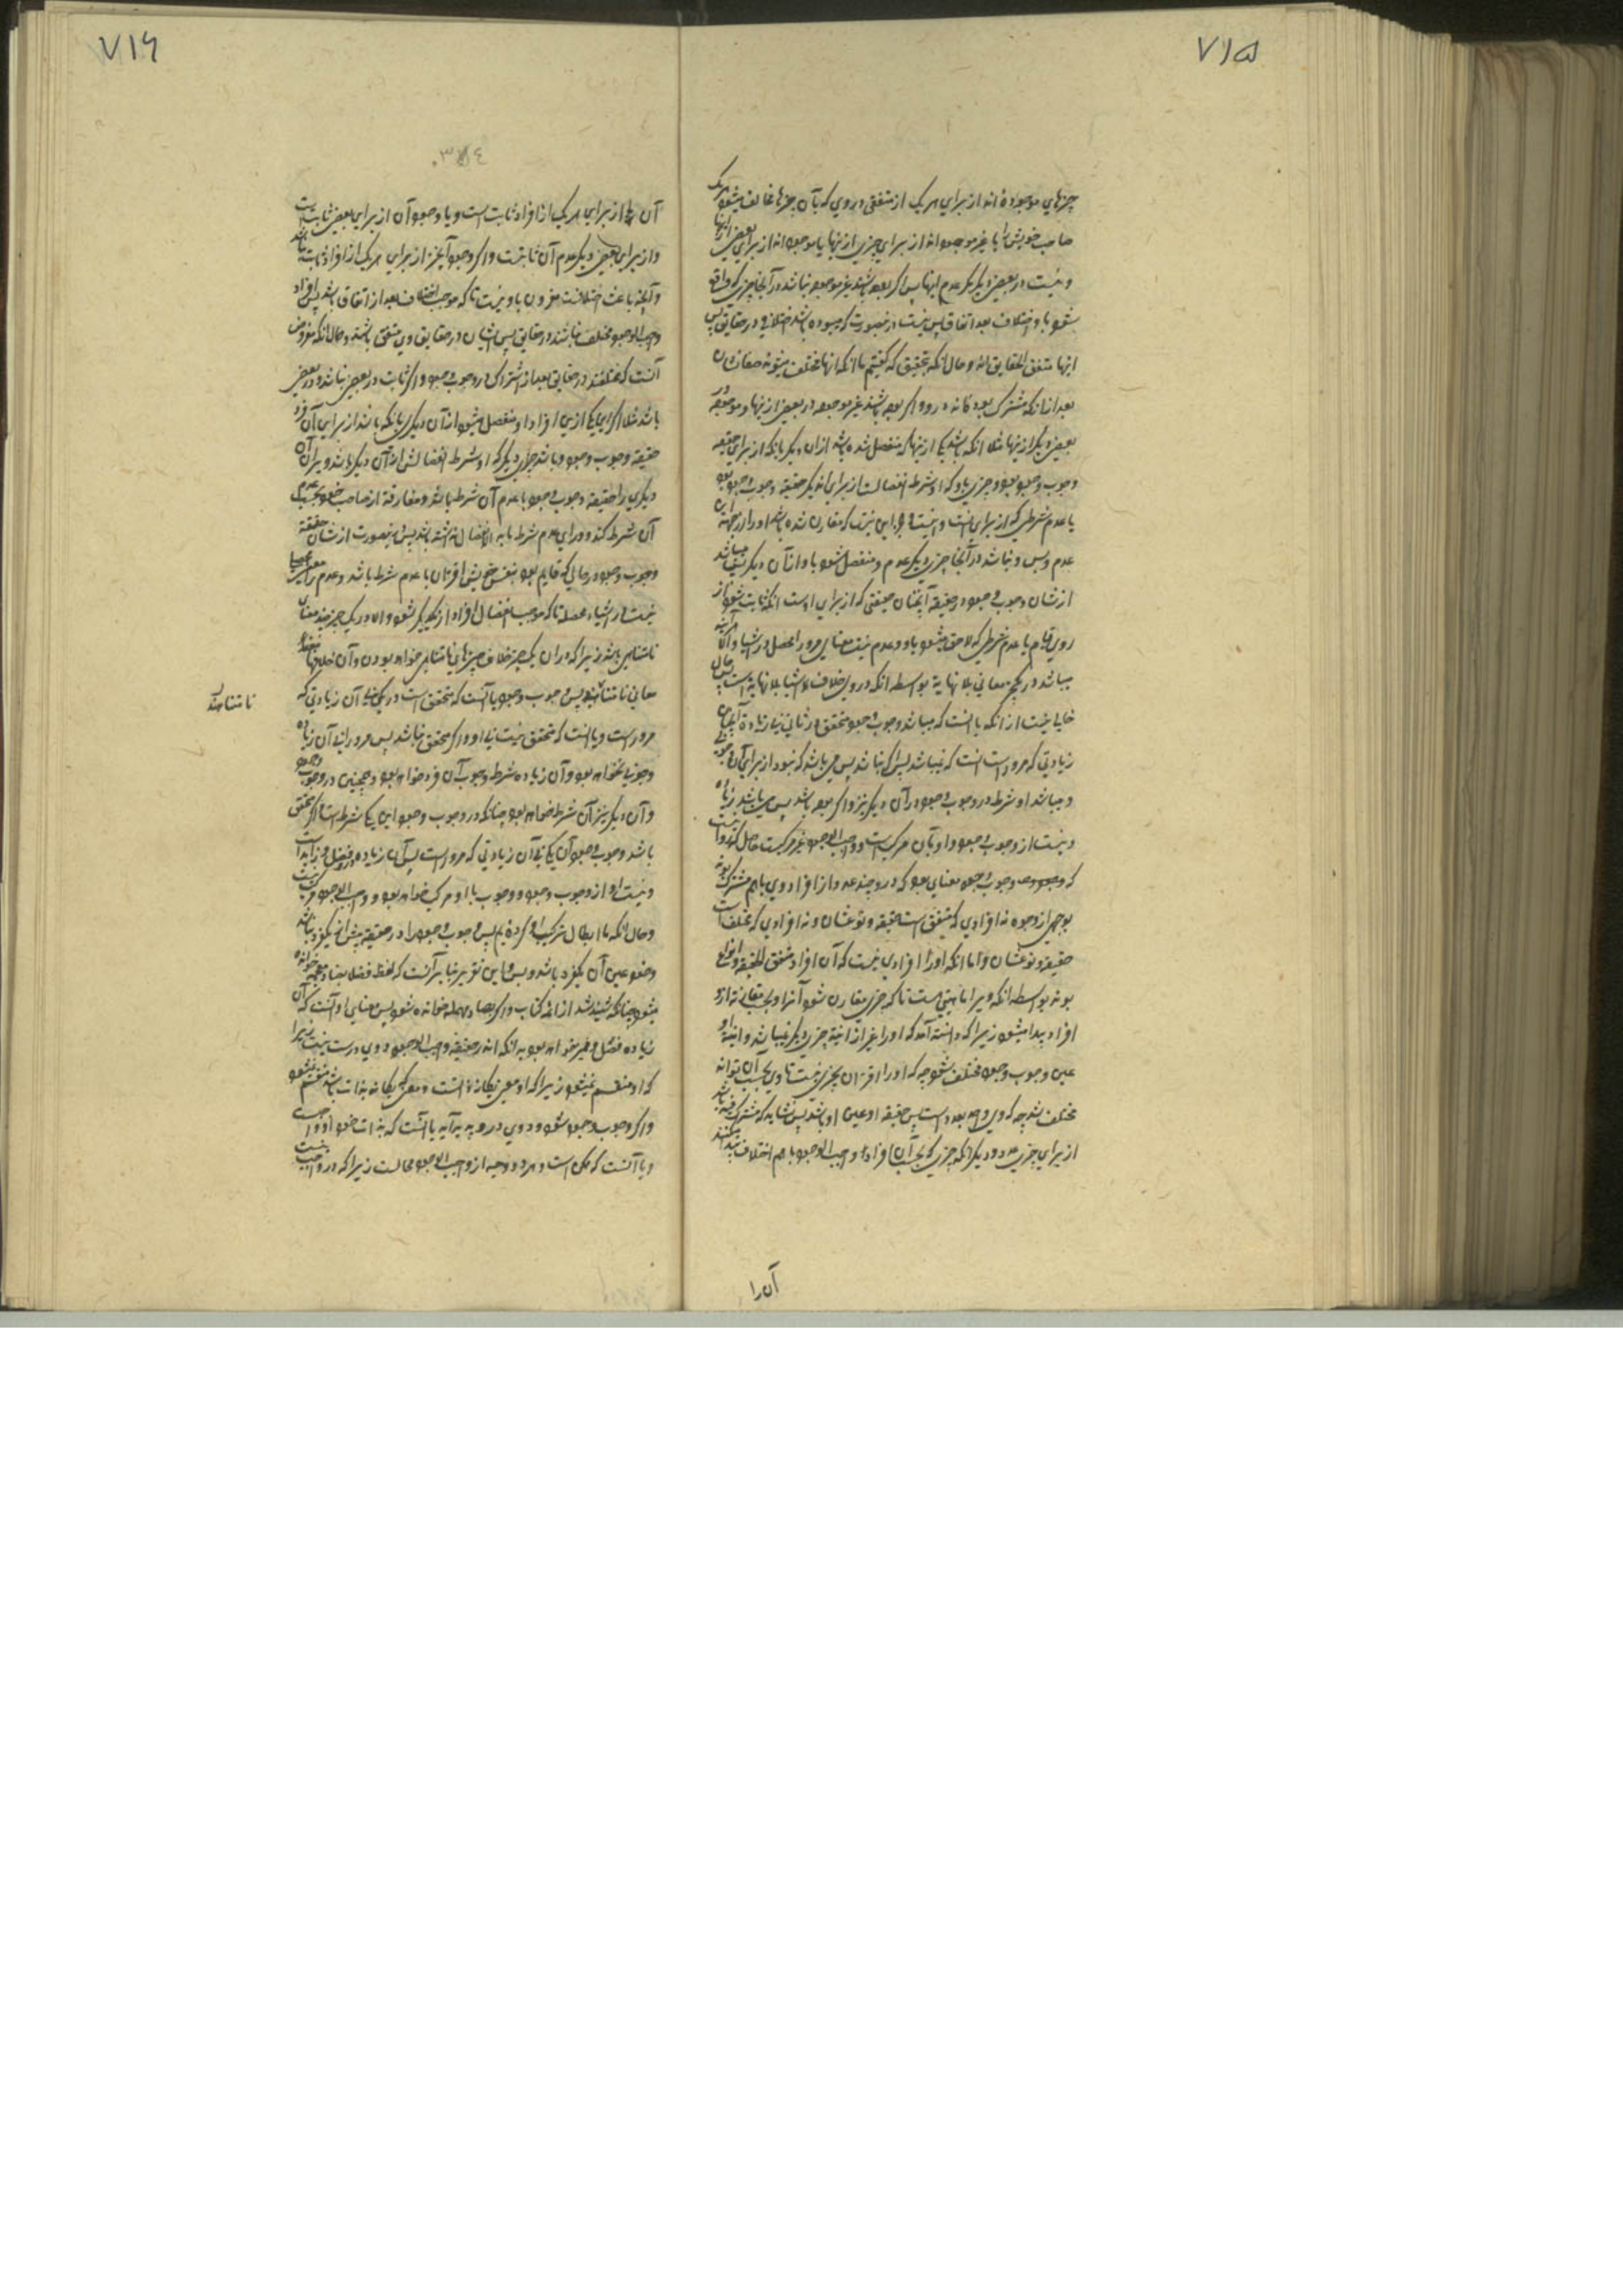 ۷۱۵
چیزهای موجوده اند از برای هر یک از متفقی در وی که بآن چیزها مخالف میشود هر یک
صاحب خویش را یا غیر موجود اند از برای چیزی از اینها یا موجود اند از برای بعض اینها
و نیست در بعض دیگر مگر عدم اینها پس اگر بوده باشند غیر موجود نباشد در آنجا چیزی که واقع
شود باو اختلاف بعد اتفاق پس نیست در اینصورت که میبوده باشد اختلافی در حقایق پس
اینها متفق الحقایق اند و حال آنکه بتحقیق که گفتیم ما آنکه اینها مختلف میشوند حقایقشان
بعد از آنکه مشترک بوده اند در وی و اگر بوده باشند غیر موجود در بعض از اینها و موجود در
بعض دیگر از اینها مثلا آنکه باشد یکی از اینها که منفصل شده باشد از آن دیگر بآنکه از برای حقیقه
وجوب وجود بود و چیزی باو که او شرط انفصالست از برای آن دیگر حقیقه وجوب وجود بود
با عدم شرطی که از برای اینست و نیست این که مقارن شده باشد او را از جهة این
عدم و بس و نباشد در آنجا چیزی دیگر عدم و منفصل شود باو از آن دیگر پس میباشد
از شان وجوب وجود در حقیقه آنچنان حقیقتی که از برای اوست آنکه ثابت شود از
روی قوام با عدم شرطی که لاحق میشود باو و عدم نیست معنایی مر او را محصل در اشیا و الا
میباشد در یک چیز معانی بلا نهایة بواسطه آنکه در وی خلاف اشیا بلا نهایة است پس حال
خالی نیست از آنکه یا اینست که میباشد وجوب وجود متحقق در ثانی نیاز زیاده آنچنان
زیادتی که مر او راست یا اینست که نمیباشد پس اگر نباشد پس می باشد که نبود از برای آن وجوب وجود
و میباشد او شرط در وجوب وجود در آن دیگر نیز و اگر بوده باشد پس می باشد زیاده
و نیست از وجوب وجود و او بآن مرکبست و واجب الوجود غیر مرکبست حاصل که روا نیست
که وجوب وجود معنایی بود که در وی چند عدد از افراد وی باهم مشترک بوند
بوجهی از وجوه نه افرادی که متفق است حقیقه و نوعشان و نه افرادی که مختلف است
حقیقه و نوعشان و اما آنکه او را افرادی نیست که آن افراد متفق الحقیقه و انواع
بوند بواسطه آنکه ویرا ماهیتی نیست تا که چیزی مقارن شود آنرا و بحسب مقارنه از او
افراد پیدا میشود زیرا که دانسته آمد که او را غیر از انیة چیزی دیگر نمیباشد و انیة او
عین وجوب وجود مختلف نشود چه که او را اقتران بچیزی نیست تا وی بحسب آن تواند
مختلف شد چه که وی واحد بعدد است پس حقیقه او عین او باشد پس نشاید که مشترک فیه باشد
از برای چیزی عدد و دیگر آنکه چیزی که بحسب آن افراد واجب الوجود باهم اختلاف پیدا میکنند
آن را
۷۱۶
۰۳۷٤
آن یا از برای هر یک از افراد ثابت است و یا وجود آن از برای بعض ثابت است
و از برای بعض دیگر عدم آن ثابتست و اگر وجود آنچیز از برای هر یک از افراد ثابت باشد
و آنچه باعث اختلافست مقرون باو نیست تا که موجب اختلاف بعد از اتفاق باشد پس افراد
واجب الوجود مختلف نباشند در حقایق پس ایشان در حقایق وی متفق باشند و حال آنکه مفروض
آنست که مختلفند در حقایق بعد از اشتراک در وجوب وجود و اگر ثابت در بعض نباشد و در بعض
باشد مثلا اگر یکی از این افراد او منفصل میشود از آن دیگر بآنکه باشد از برای آن فرد
حقیقة وجوب وجود و باشد چیزی دیگر که او شرط انفصالش از آن دیگر باشد و برای آن
دیگری را حقیقه وجوب وجود با عدم آن شرط باشد و مفارقه از صاحب خود بحسب عدم
آن شرط کند و ورای عدم شرط ما به الانفصال نداشته باشد پس در اینصورت از شان حقیقة
وجوب وجود در حالی که قایم بود بنفس خویش اقتران با عدم شرط باشد و عدم را معنی محصل
نیست در اشیاء محصله تا که موجب انفصال افراد از یکدیگر شود و الا در یک چیز چند معنای
نامتناهی باشد زیرا که در آن یک چیز خلاف چیزهای نامتناهی خواهد بودن و آن خلافها
معانی نامتناهیند پس وجوب وجود یا آنست که متحقق است در یکی بی آن زیادتی که
نامتناهیند
مر او راست و یا اینست که متحقق نیست بی او و اگر متحقق نباشد پس مر او را بی آن زیاده
وجوبی نخواهد بود و آن زیاده شرط وجوب آن فرد خواهد بود و همچنین در وجوب وجود
و آن دیگر نیز آن شرط خواهد بود چنانکه در وجوب وجود این یکی شرط است و اگر متحقق
باشد وجوب وجود آن یکی بی آن زیادتی که مر او راست پس آن زیاده و فضل و زاید است
و نیست او از وجوب وجود و وجوب با او مرکب خواهد بود و واجب الوجود مرکب نیست
و حال آنکه ما ابطال ترکیب او کرده ایم پس وجوب وجود را در حقیقة بیش از یکفرد نباشد
و خود عین آن یکفرد باشد و بس و این تقریر بنا بر آنست که لفظ فضلا بضاد معجمه خوانده
میشود چنانکه شنیده شد از ائمه کتاب و اگر بصاد مهمله خوانده شود پس معنایی او آنست که آن
زیاده فصل و ممیز خواهد بود به آنکه آن در حقیقه واجب الوجود و وی درست نیست زیرا
که او منقسم نمیشود زیرا که او معنی یگانه است و معنی که یگانه بذات باشد منقسم نمیشود
و اگر وجوب وجود شود و وی در وی پدید آید یا آنست که بذات خود او واجب است
و یا آنست که ممکن است و هر دو وجه از واجب الوجود محالست زیرا که در واجب نیست